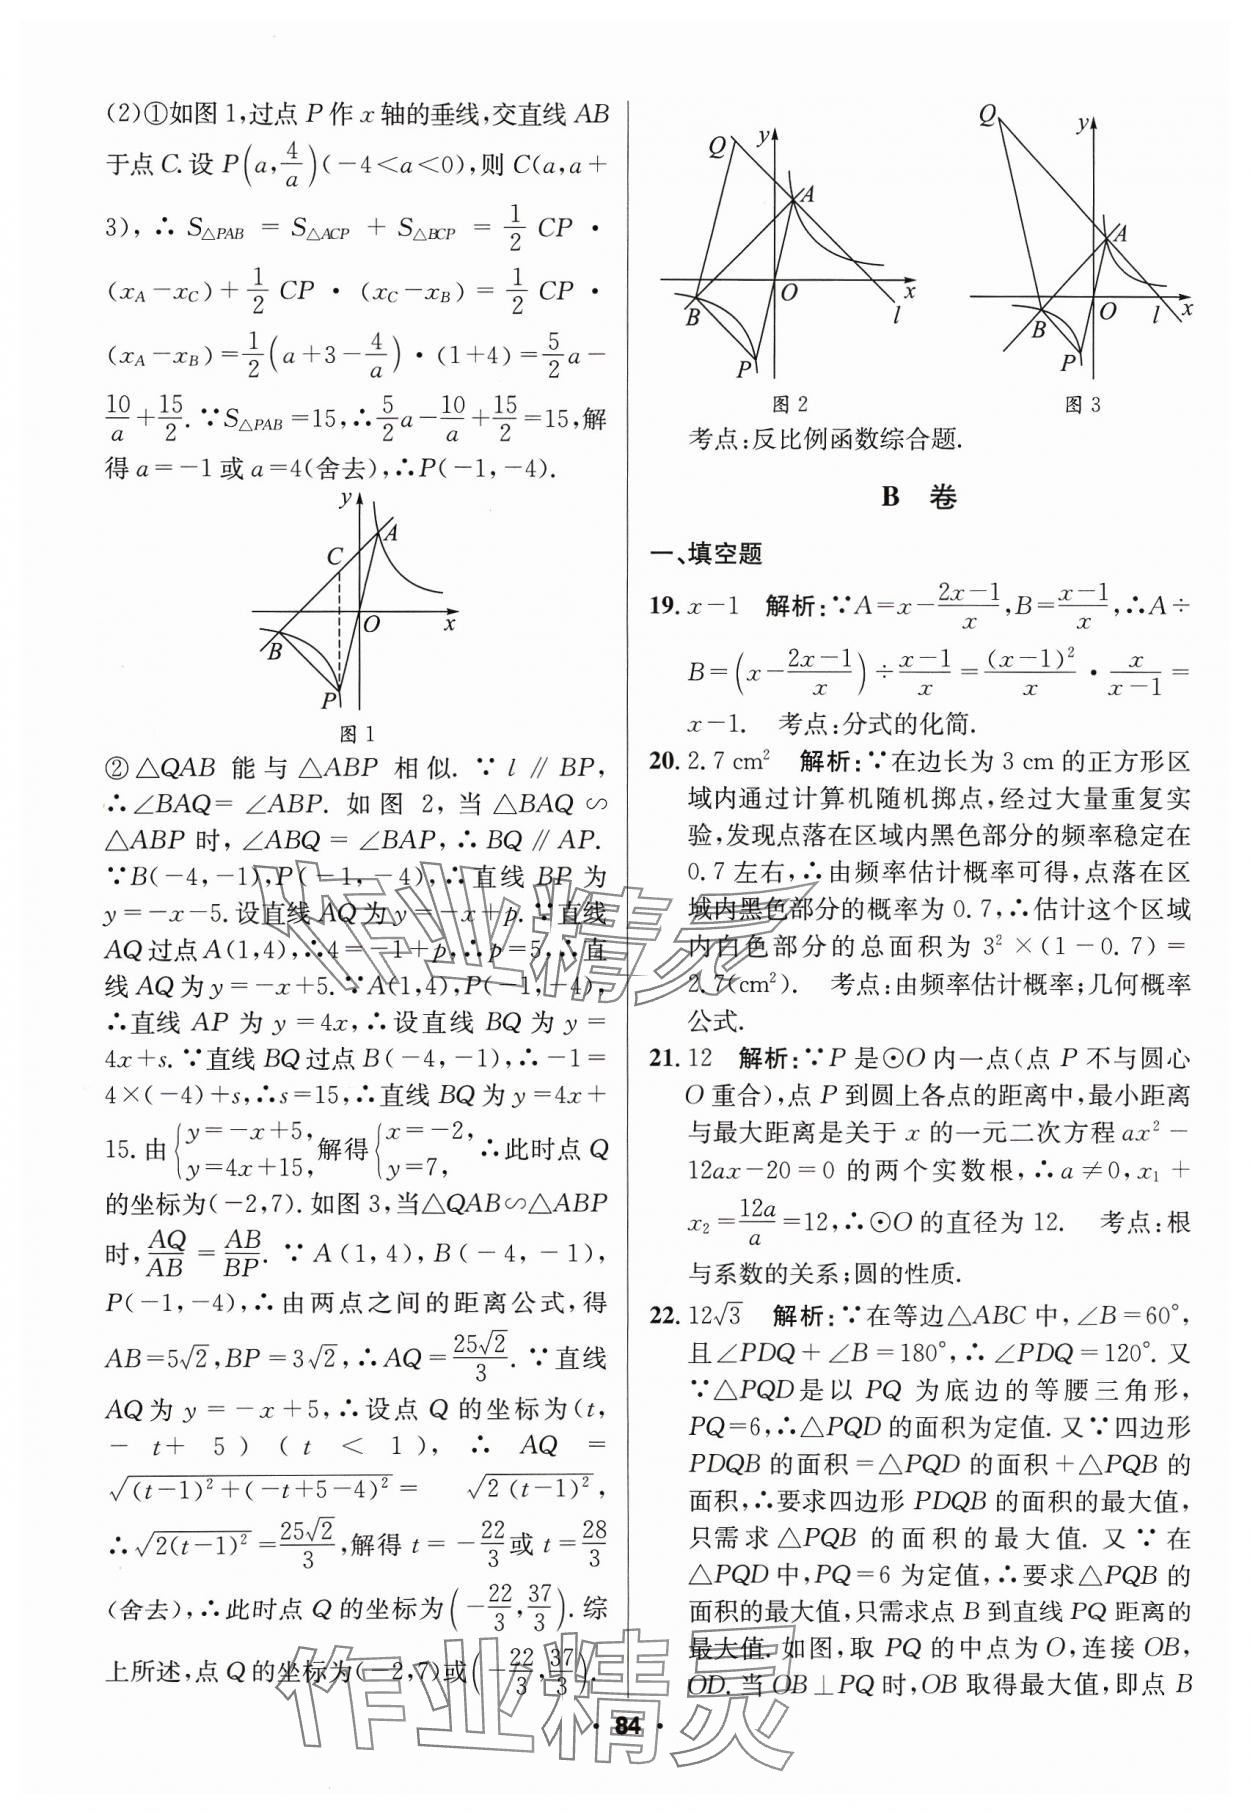 (2)①如图1,过点 P 作 x 轴的垂线,交直线 AB
于点 C. 设 P(a, 4/a)(-4<a<0),则 C(a,a+
3), ∴ S△PAB = S△ACP + S△BCP = 1/2 CP ·
(xA-xC)+1/2 CP · (xC-xB)=1/2 CP ·
(xA-xB)=1/2(a+3-4/a)·(1+4)=5/2 a-
10/a+15/2. ∵S△PAB=15,∴5/2 a-10/a+15/2=15,解
得 a=-1 或 a=4(舍去),∴P(-1,-4).
y
A
C
O
x
B
P
图1
② △QAB 能与 △ABP 相似. ∵ l∥BP,
∴∠BAQ=∠ABP. 如图 2,当 △BAQ∽
△ABP 时,∠ABQ=∠BAP,∴BQ∥AP.
∵B(-4,-1),P(-1,-4),∴直线 BP 为
y=-x-5. 设直线 AQ 为 y=-x+p. ∵直线
AQ 过点 A(1,4),∴4=-1+p,∴p=5,∴直
线 AQ 为 y=-x+5. ∵A(1,4),P(-1,-4),
∴直线 AP 为 y=4x,∴设直线 BQ 为 y=
4x+s. ∵直线 BQ 过点 B(-4,-1),∴-1=
4×(-4)+s,∴s=15,∴直线 BQ 为 y=4x+
15. 由{y=-x+5, y=4x+15,解得{x=-2, y=7, ∴此时点 Q
的坐标为(-2,7). 如图 3,当△QAB∽△ABP
时,AQ/AB=AB/BP. ∵ A(1,4),B(-4,-1),
P(-1,-4),∴由两点之间的距离公式,得
AB=5√2,BP=3√2,∴AQ=25√2/3. ∵直线
AQ 为 y=-x+5,∴设点 Q 的坐标为(t,
-t+5)(t<1),∴ AQ =
√((t-1)²+(-t+5-4)²)= √(2(t-1)²),
∴√(2(t-1)²)=25√2/3,解得 t=-22/3 或 t=28/3
(舍去),∴此时点 Q 的坐标为(-22/3,37/3). 综
上所述,点 Q 的坐标为(-2,7)或(-22/3,37/3).
Q
y
A
O
x
B
l
P
图2
Q
y
A
O
x
B
l
P
图3
考点:反比例函数综合题.
B 卷
一、填空题
19. x-1 解析:∵A=x-(2x-1)/x,B=(x-1)/x,∴A÷
B=(x-(2x-1)/x)÷(x-1)/x=(x-1)²/x·x/(x-1)=
x-1. 考点:分式的化简.
20. 2.7 cm² 解析:∵在边长为 3 cm 的正方形区
域内通过计算机随机掷点,经过大量重复实
验,发现点落在区域内黑色部分的频率稳定在
0.7 左右,∴由频率估计概率可得,点落在区
域内黑色部分的概率为 0.7,∴估计这个区域
内白色部分的总面积为 3²×(1-0.7)=
2.7(cm²). 考点:由频率估计概率;几何概率
公式.
21. 12 解析:∵P 是⊙O 内一点(点 P 不与圆心
O 重合),点 P 到圆上各点的距离中,最小距离
与最大距离是关于 x 的一元二次方程 ax²-
12ax-20=0 的两个实数根,∴a≠0,x₁+
x₂=12a/a=12,∴⊙O 的直径为 12. 考点:根
与系数的关系;圆的性质.
22. 12√3 解析:∵在等边△ABC 中,∠B=60°,
且∠PDQ+∠B=180°,∴∠PDQ=120°. 又
∵△PQD 是以 PQ 为底边的等腰三角形,
PQ=6,∴△PQD 的面积为定值. 又∵四边形
PDQB 的面积=△PQD 的面积+△PQB 的
面积,∴要求四边形 PDQB 的面积的最大值,
只需求 △PQB 的面积的最大值. 又∵在
△PQD 中,PQ=6 为定值,∴要求△PQB 的
面积的最大值,只需求点 B 到直线 PQ 距离的
最大值. 如图,取 PQ 的中点为 O,连接 OB,
OD. 当 OB⊥PQ 时,OB 取得最大值,即点 B
· 84 ·
作业精灵
作业精灵